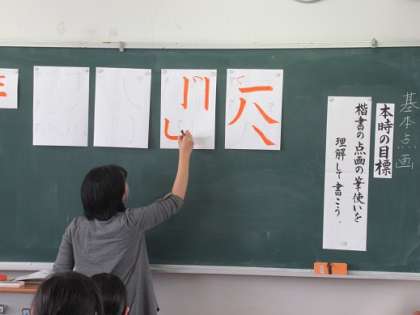 基本点画
本時の目標
楷書の点画の筆使いを
理解して書こう。